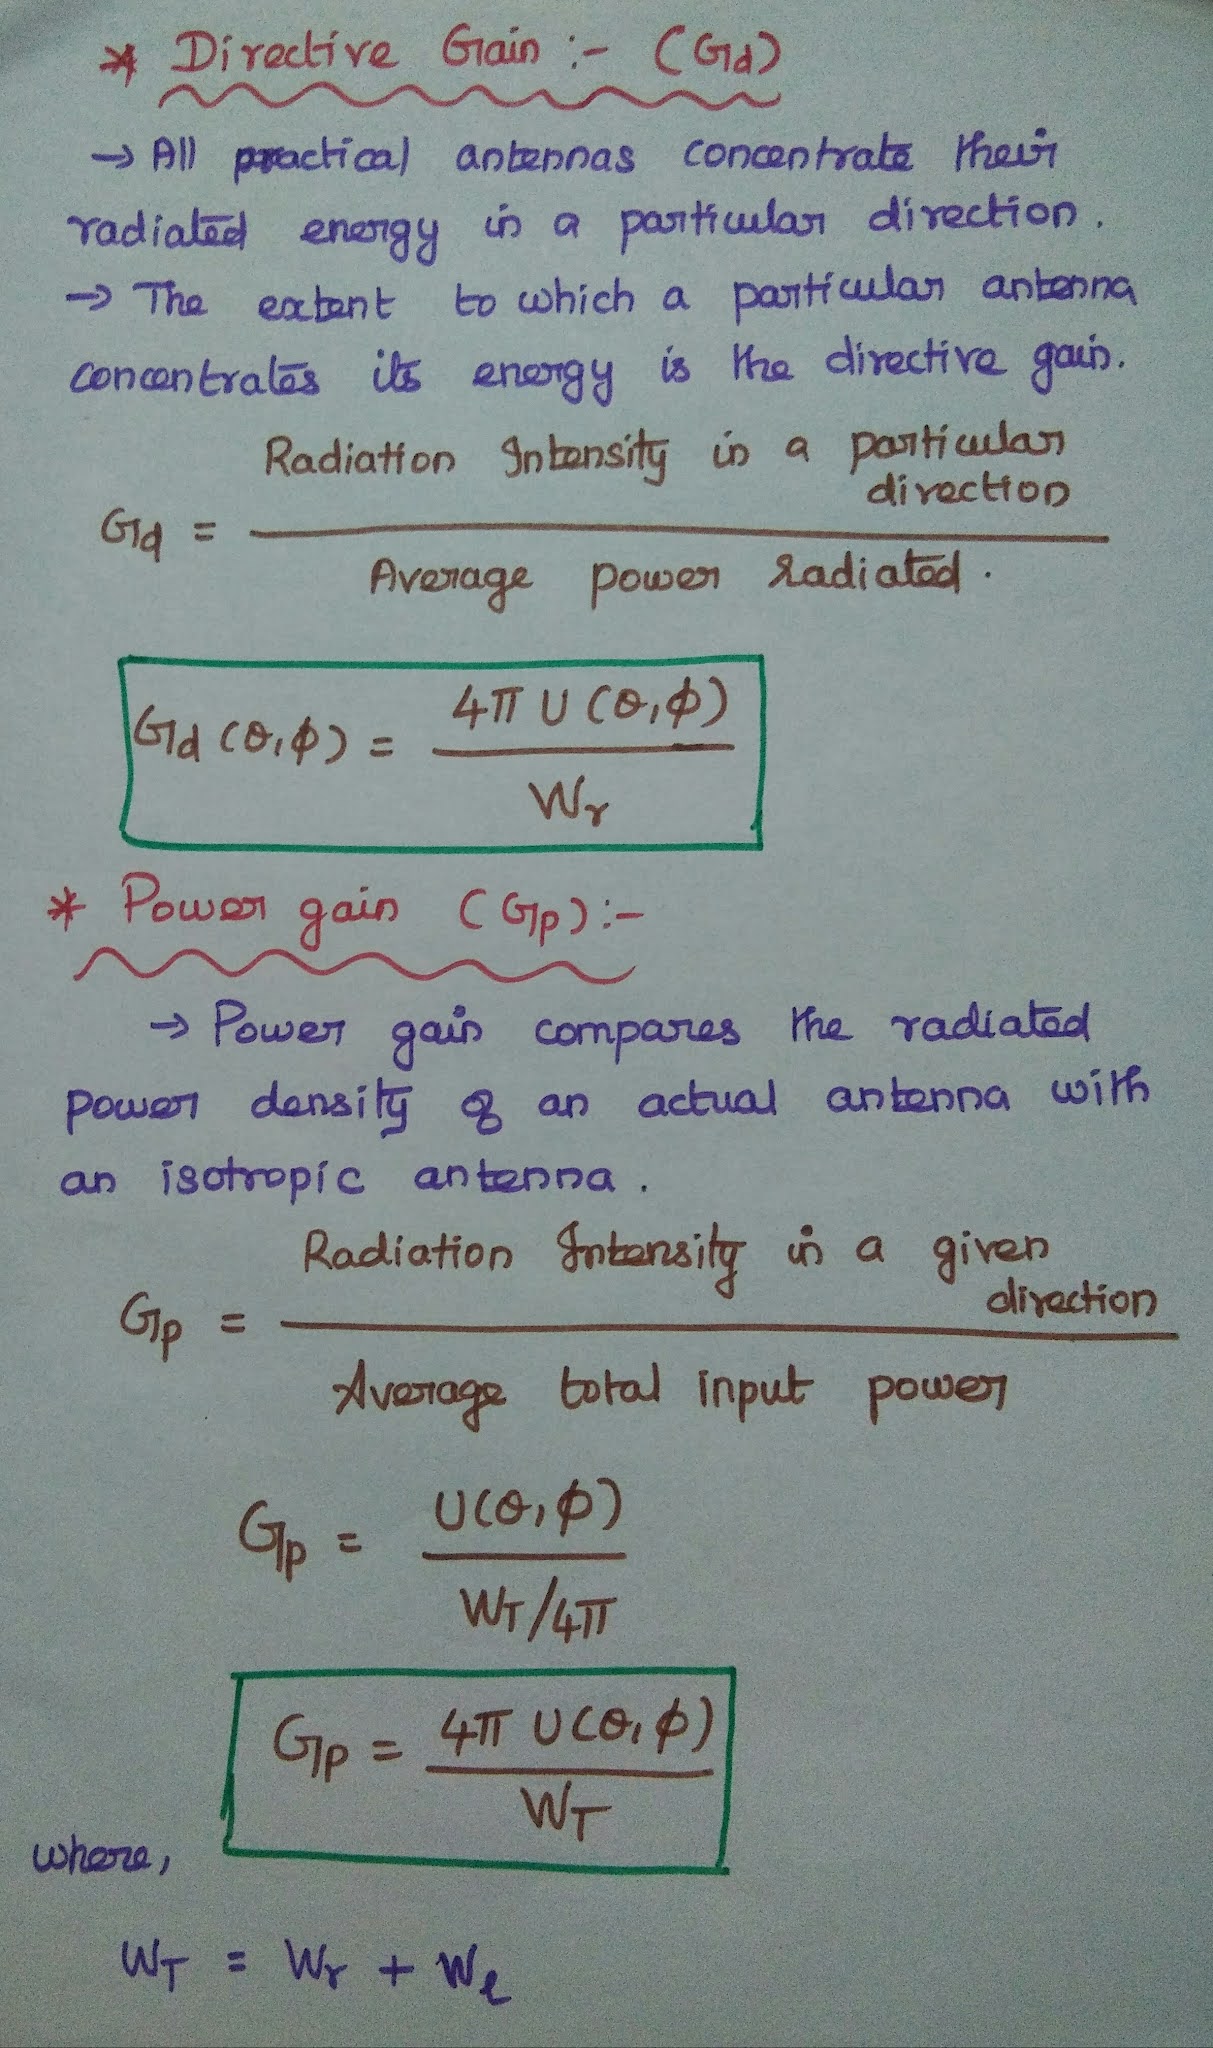 * Directive Gain :- (Gd)
→ All practical antennas concentrate their
radiated energy in a particular direction.
→ The extent to which a particular antenna
concentrates its energy is the directive gain.
Radiation Intensity in a particular
direction
Gd =
Average power radiated.
Gd (θ,φ) = 4π U (θ,φ)
Wr
* Power gain (Gp) :-
→ Power gain compares the radiated
power density of an actual antenna with
an isotropic antenna.
Radiation Intensity in a given
direction
Gp =
Average total input power
Gp = U(θ,φ)
WT/4π
Gp = 4π U(θ,φ)
WT
where,
WT = Wr + Wl